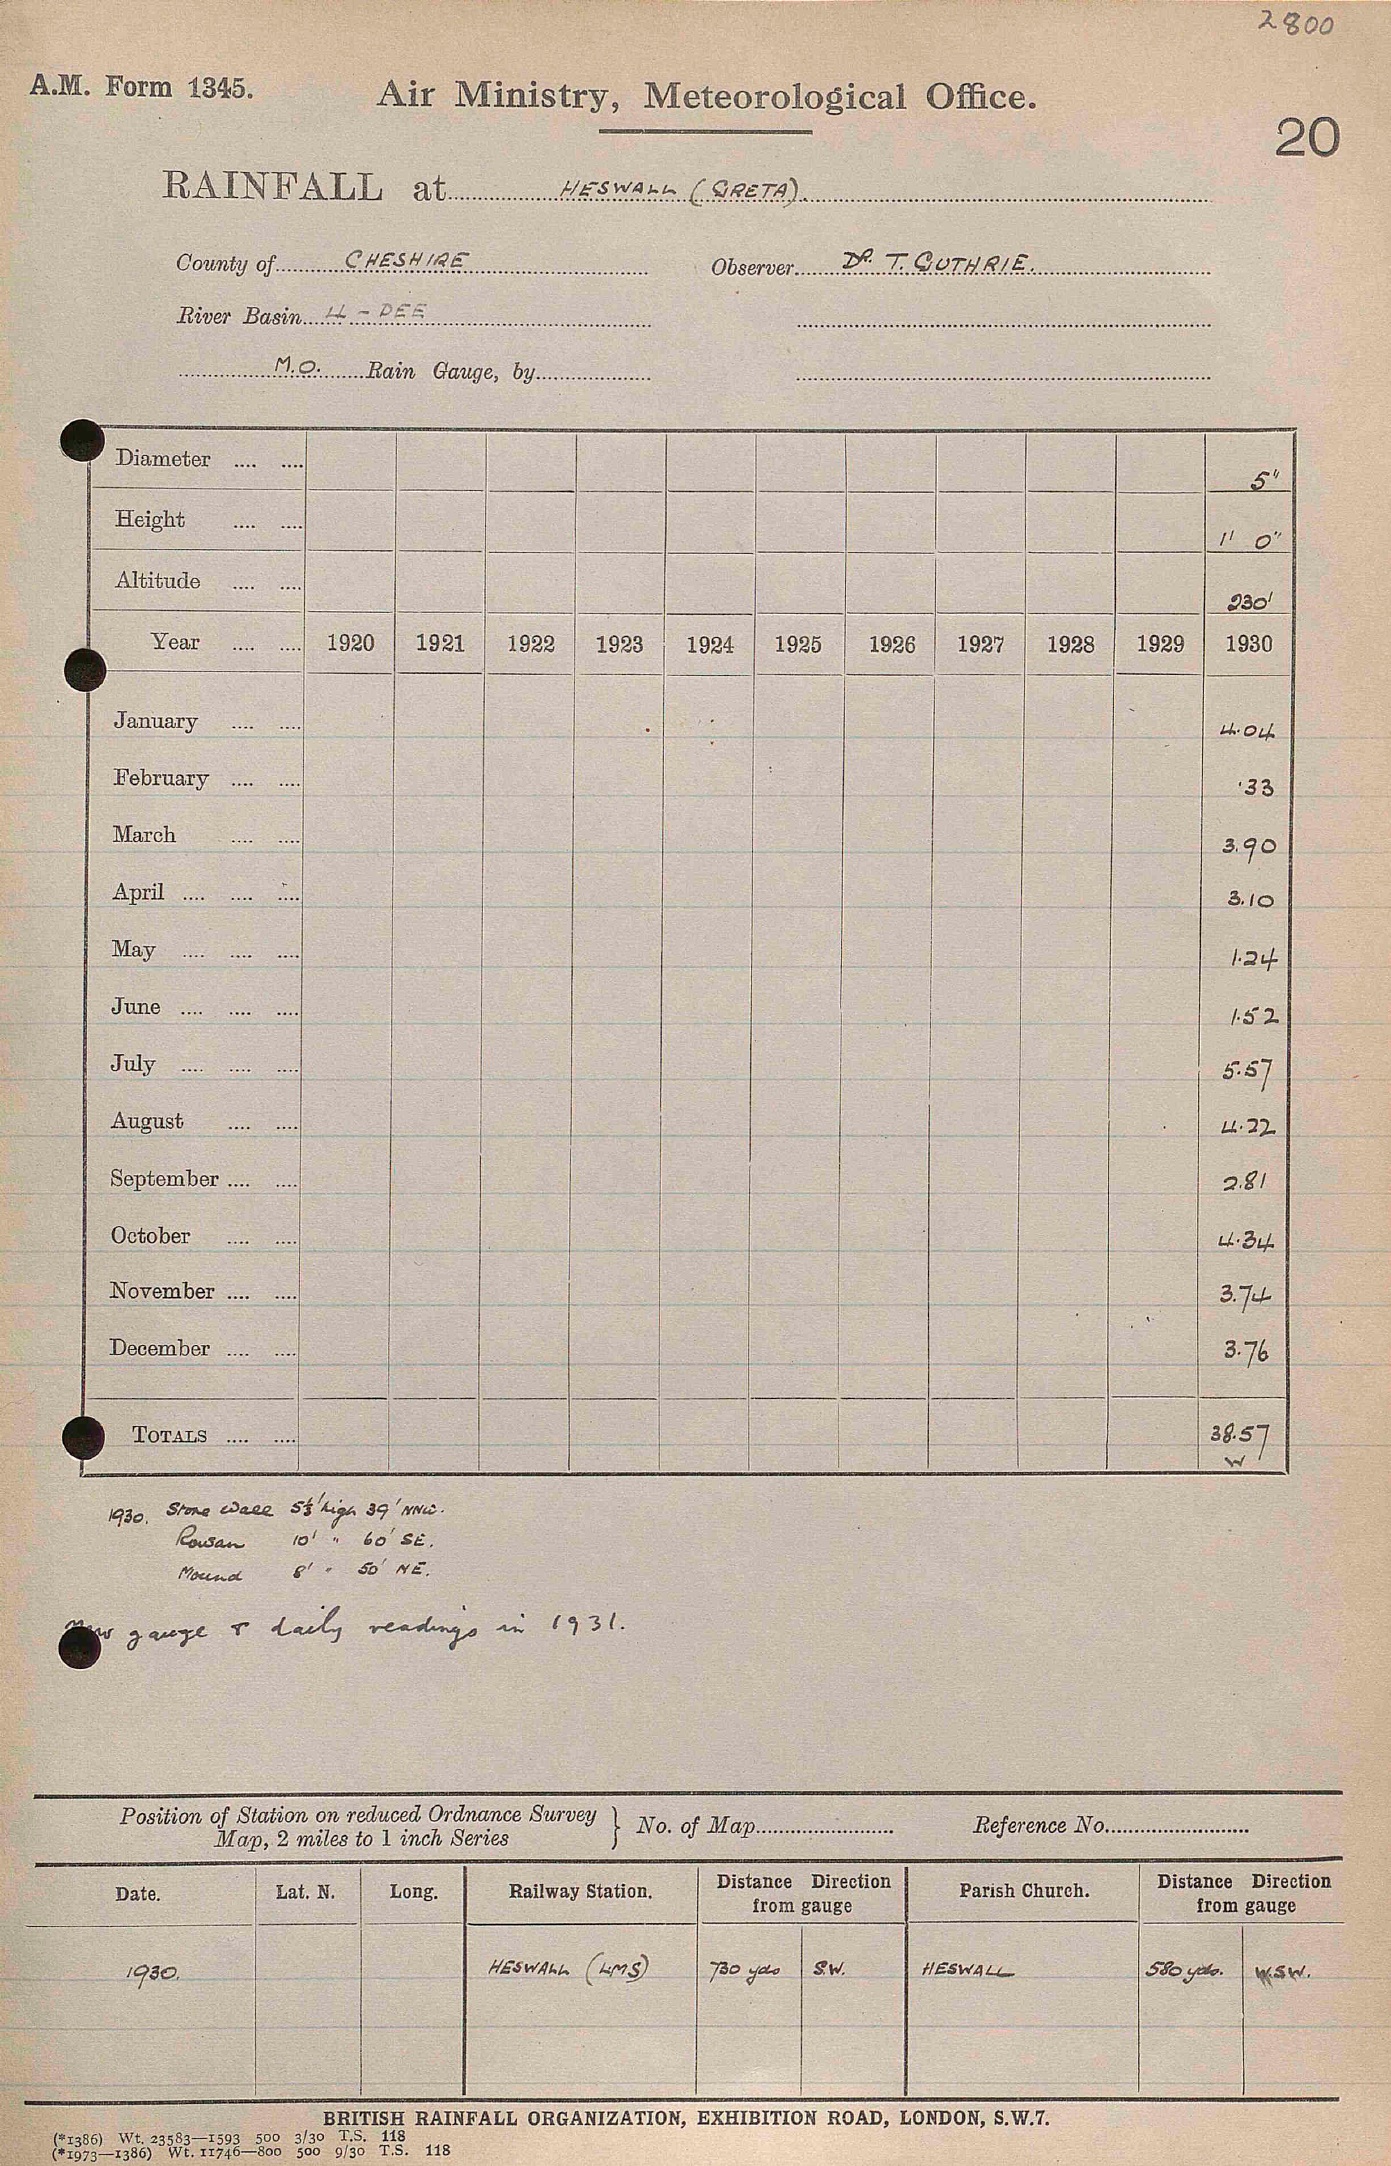 2800
A.M. Form 1345. Air Ministry, Meteorological Office.
20
RAINFALL at HESWALL (GRETA).
County of CHESHIRE Observer DR. T. GUTHRIE.
River Basin 4 - DEE
M.O. Rain Gauge, by
Diameter .... .... 5"
Height .... .... 1' 0"
Altitude .... .... 230'
Year .... .... 1920 1921 1922 1923 1924 1925 1926 1927 1928 1929 1930
January .... .... 4.04
February .... .... .33
March .... .... 3.90
April .... .... .... 3.10
May .... .... .... 1.24
June .... .... .... 1.52
July .... .... .... 5.57
August .... .... 4.22
September .... .... 2.81
October .... .... 4.34
November .... .... 3.74
December .... .... 3.76
TOTALS .... .... 38.57
W
1930. Stone Wall 5½' high 39' NNW.
Rowan 10' " 60' SE.
Mound 8' " 50' NE.
New gauge & daily readings in 1931.
Position of Station on reduced Ordnance Survey
Map, 2 miles to 1 inch Series } No. of Map Reference No.
Date. Lat. N. Long. Railway Station. Distance Direction from gauge Parish Church. Distance Direction from gauge
1930. HESWALL (LMS) 730 yds S.W. HESWALL 580 yds. W.S.W.
BRITISH RAINFALL ORGANIZATION, EXHIBITION ROAD, LONDON, S.W.7.
(*1386) Wt. 23583—1593 500 3/30 T.S. 118
(*1973—1386) Wt. 11746—800 500 9/30 T.S. 118